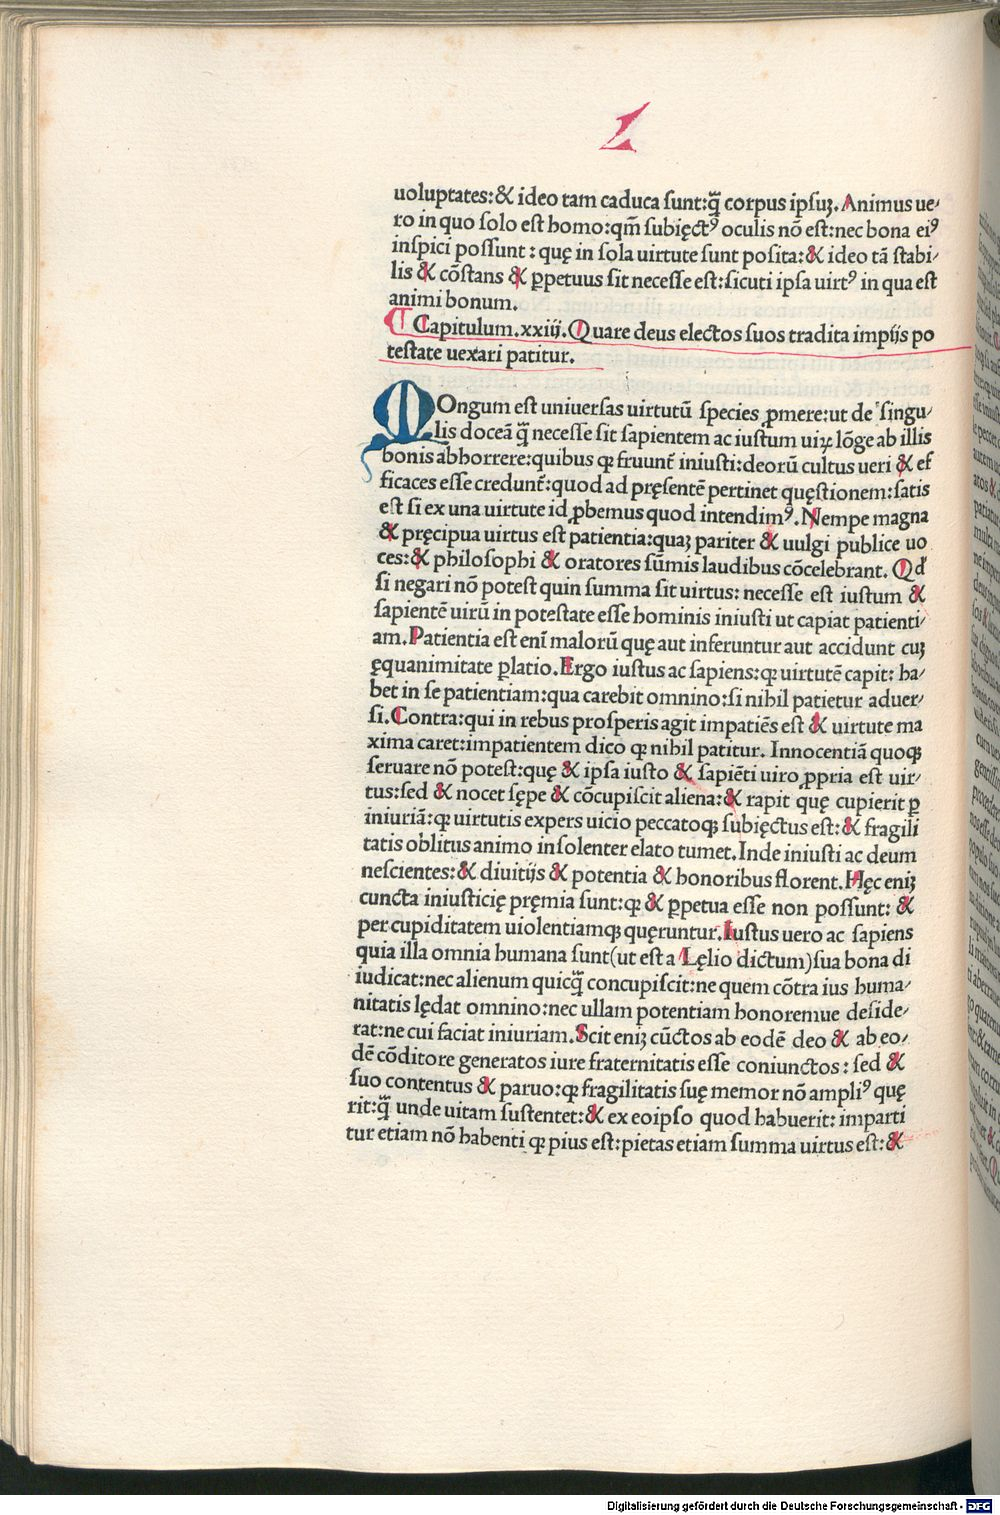 L
uoluptates: & ideo tam caduca ſunt: q̃ corpus ipſuꝫ. Animus ue⸗
ro in quo ſolo eſt homo: qm̃ ſubięctꝰ oculis nō eſt: nec bona eiꝰ
inſpici poſſunt: quę in ſola uirtute ſunt poſita: & ideo tā ſtabi⸗
lis & cōſtans & ꝑpetuus ſit neceſſe eſt: ſicuti ipſa uirtꝰ in qua eſt
animi bonum.
¶ Capitulum. xxiiij. Quare deus electos ſuos tradita impijs po
teſtate uexari patitur.
LOngum eſt uniuerſas uirtutū ſpecies ꝓmere: ut de ſingu⸗
lis doceā q̃ neceſſe ſit ſapientem ac iuſtum uiꝝ lōge ab illis
bonis abhorrere: quibus ꝙ fruunt̄ iniuſti: deorū cultus ueri & ef
ficaces eſſe credunt̄: quod ad pręſentē pertinet quęſtionem: ſatis
eſt ſi ex una uirtute id ꝓbemus quod intendimꝰ. Nempe magna
& pręcipua uirtus eſt patientia: quaꝫ pariter & uulgi publice uo
ces: & philoſophi & oratores ſūmis laudibus cōcelebrant. Qd̓
ſi negari nō poteſt quin ſumma ſit uirtus: neceſſe eſt iuſtum &
ſapientē uirū in poteſtate eſſe hominis iniuſti ut capiat patienti⸗
am. Patientia eſt enī malorū quę aut inferuntur aut accidunt cuꝫ
ęquanimitate ꝑlatio. Ergo iuſtus ac ſapiens: ꝙ uirtutē capit: ha⸗
bet in ſe patientiam: qua carebit omnino: ſi nihil patietur aduer⸗
ſi. Contra: qui in rebus proſperis agit impatiēs eſt & uirtute ma
xima caret: impatientem dico ꝙ nihil patitur. Innocentiā quoqꝫ
ſeruare nō poteſt: quę & ipſa iuſto & ſapiēti uiro ꝓpria eſt uir⸗
tus: ſed & nocet ſępe & cōcupiſcit aliena: & rapit quę cupierit ꝑ
iniuriā: ꝙ uirtutis expers uicio peccatoqꝫ ſubięctus eſt: & fragili
tatis oblitus animo inſolenter elato tumet. Inde iniuſti ac deum
neſcientes: & diuitijs & potentia & honoribus florent. Hęc eniꝫ
cuncta iniuſticię pręmia ſunt: ꝙ & ꝑpetua eſſe non poſſunt: &
per cupiditatem uiolentiamqꝫ quęruntur. Iuſtus uero ac ſapiens
quia illa omnia humana ſunt (ut eſt a Lęlio dictum) ſua bona di
iudicat: nec alienum quicq̃ concupiſcit: ne quem cōtra ius huma⸗
nitatis lędat omnino: nec ullam potentiam honoremue deſide⸗
rat: ne cui faciat iniuriam. Scit eniꝫ cūctos ab eodē deo & ab eo⸗
dē cōditore generatos iure fraternitatis eſſe coniunctos: ſed &
ſuo contentus & paruo: ꝙ fragilitatis ſuę memor nō ampliꝰ quę
rit: q̃ unde uitam ſuſtentet: & ex eoipſo quod habuerit: imparti
tur etiam nō habenti ꝙ pius eſt: pietas etiam ſumma uirtus eſt: &
Digitalisierung gefördert durch die Deutsche Forschungsgemeinschaft - DFG